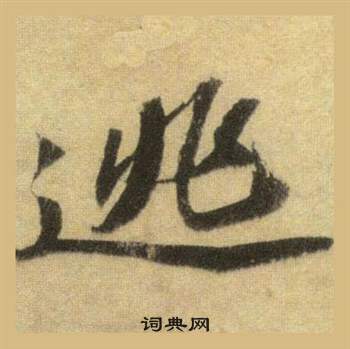 逃
词典网